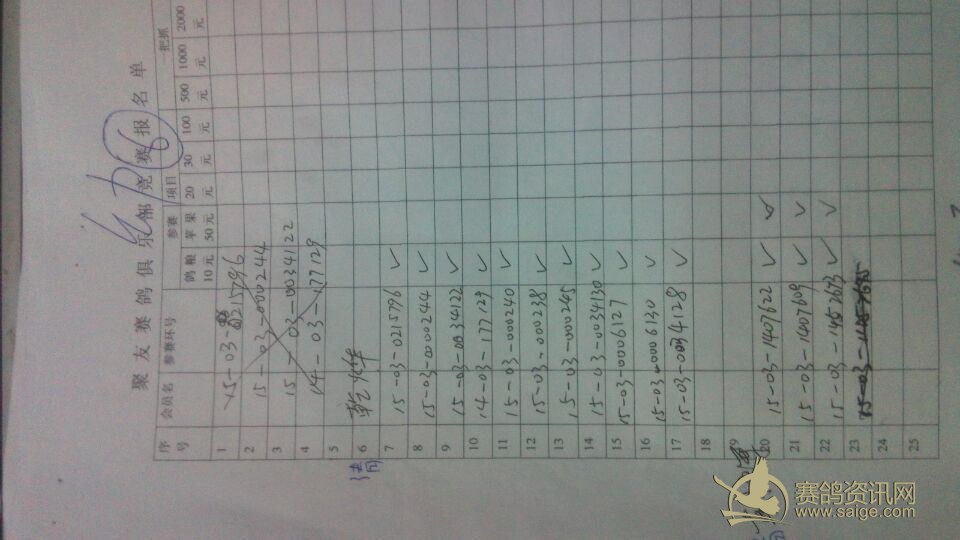 聚友赛鸽俱乐部竞赛报名单
序号 会员名 参赛环号 参赛项目 一把抓
鸽粮10元 苹果50元 20元 30元 100元 500元 1000元 2000元
1 15-03-0215796
2 15-03-0000244
3 15-03-0034122
4 14-03-177129
5
6 乾烨
7 15-03-0215796 ✓
8 15-03-0000244 ✓
9 15-03-0034122 ✓
10 14-03-177129 ✓
11 15-03-000240 ✓
12 15-03-000238 ✓
13 15-03-000245 ✓
14 15-03-0034130 ✓
15 15-03-0006127 ✓
16 15-03-0006130 ✓
17 15-03-0034128 ✓
18
19
20 15-03-1407622 ✓ ✓
21 15-03-1407609 ✓ ✓
22 ✓ ✓
23
24
25
赛鸽资讯网
www.saige.com